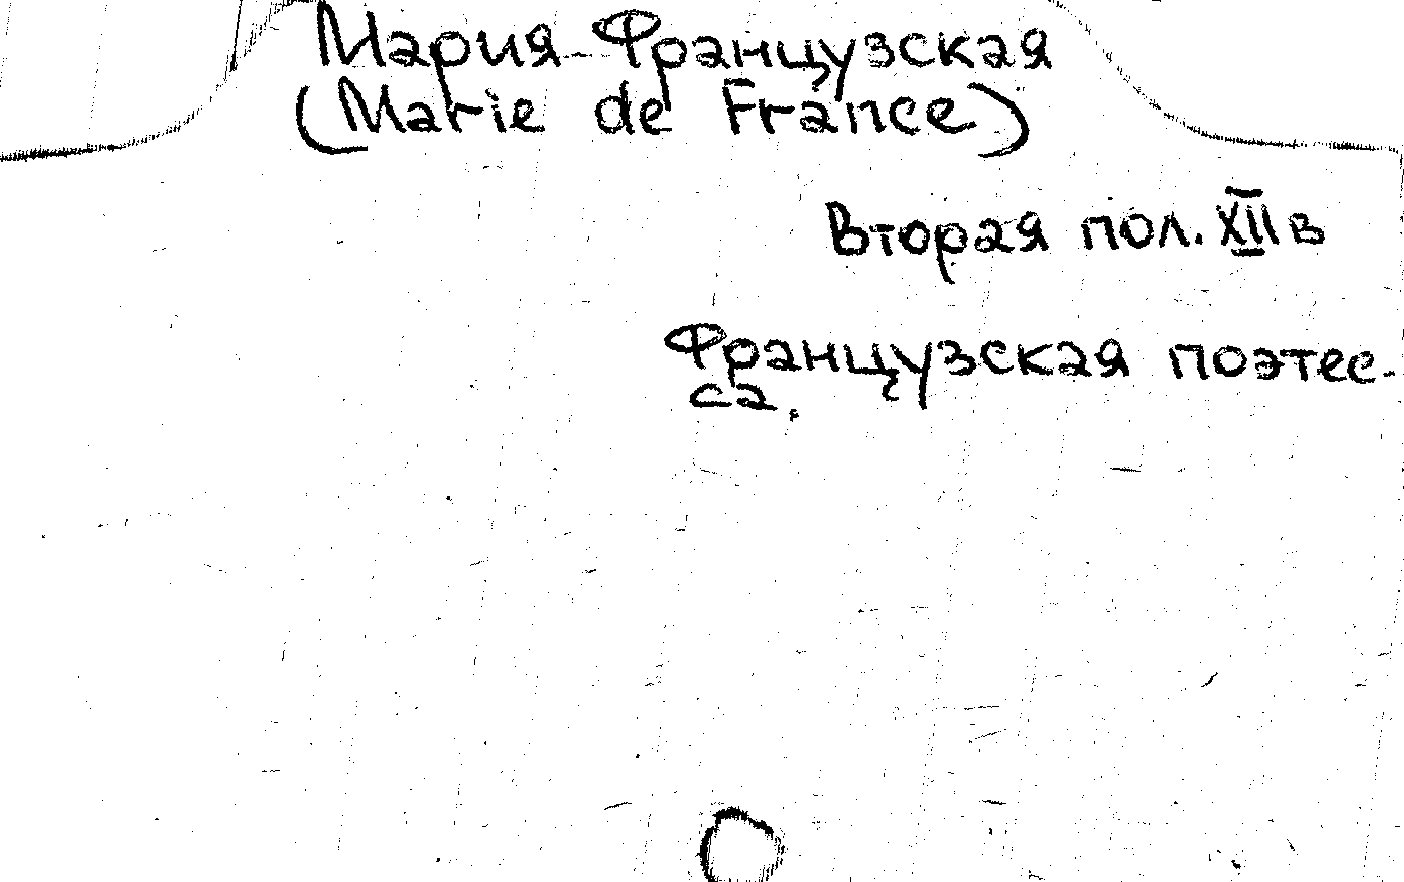 Мария Французская
(Marie de France)
Вторая пол. XII в
Французская поэтес-
са.